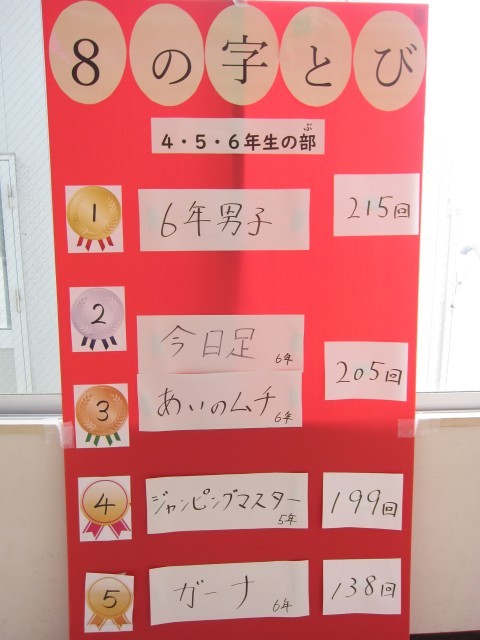 8の字とび
ぶ
4・5・6年生の部
1
6年男子
215回
2
今日足
6年
205回
3
あいのムチ
6年
4
ジャンピングマスター
5年
199回
5
ガーナ
6年
138回